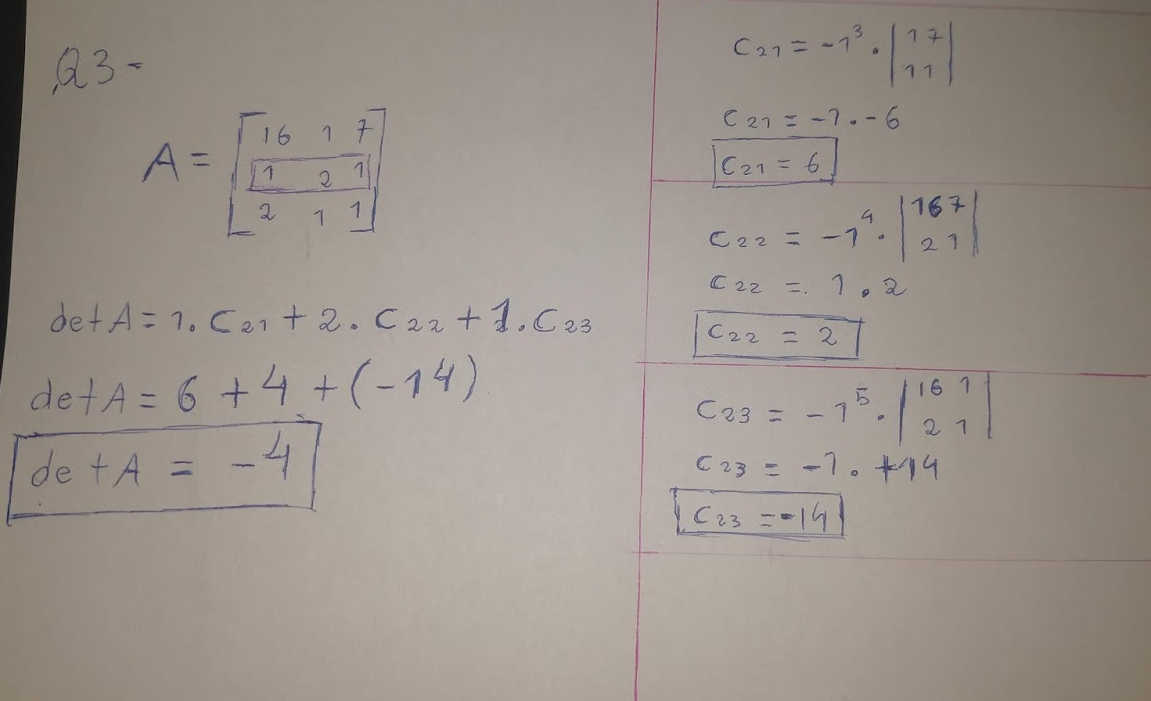 Q3-
A = [16 1 7
1 2 1
2 1 1]
detA = 1. C21 + 2. C22 + 1. C23
detA = 6 + 4 + (-14)
detA = -4
C21 = -1³ . |1 7
1 1|
C21 = -1 . -6
C21 = 6
C22 = -1⁴ . |16 7
2 1|
C22 = 1 . 2
C22 = 2
C23 = -1⁵ . |16 1
2 1|
C23 = -1 . +14
C23 = -14